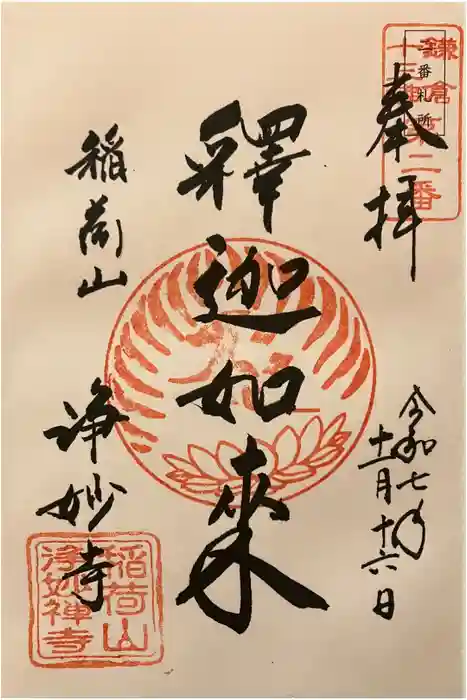 奉拝
鎌倉
十三佛第二番
二番札所
令和七年
十一月十六日
釋迦如来
稲荷山
浄妙寺
稲荷山
浄妙禅寺